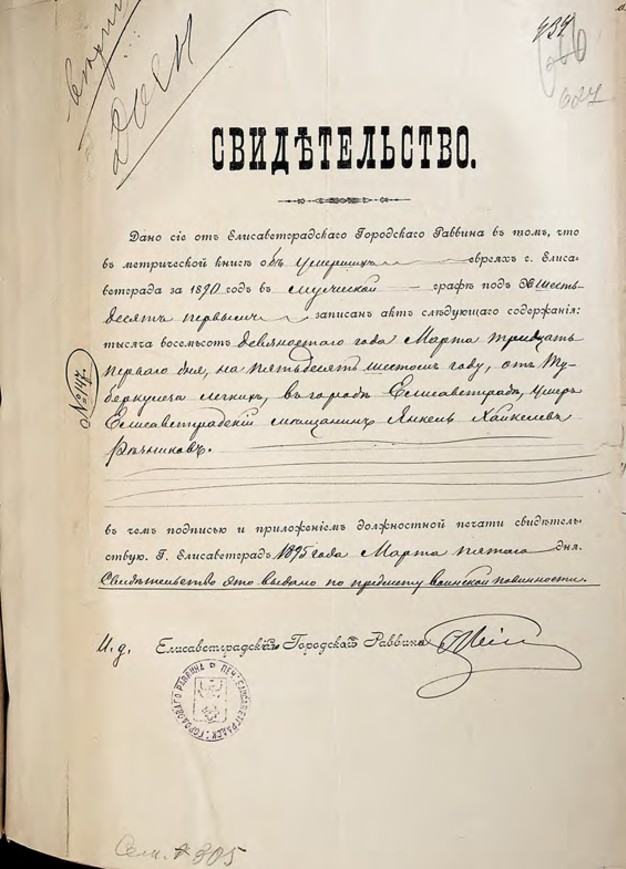 434
627
СВИДѢТЕЛЬСТВО.
Дано сіе отъ Елисаветградскаго Городскаго Раввина въ томъ, что
въ метрической книгѣ объ умершихъ евреяхъ г. Елиса-
ветграда за 1890 годъ въ мужской графѣ подъ № шесть-
десятъ первымъ записанъ актъ слѣдующаго содержанія:
тысяча восемьсотъ девяностаго года Марта тридцать
перваго дня, на пятьдесятъ шестомъ году, отъ Ту-
беркулеза легкихъ, въ городѣ Елисаветградѣ, умеръ
Елисаветградскій мѣщанинъ Янкель Хайкелевъ
Рѣчниковъ.
№ 147.
въ чемъ подписью и приложеніемъ должностной печати свидѣтель-
ствую. Г. Елисаветградъ 1895 года Марта пятаго дня.
Свидѣтельство это выдано по предмету воинской повинности.
И. д. Елисаветградскій Городской Раввинъ
ПЕЧ. ЕЛИСАВЕТГРАДСК. ГОРОДОВАГО РАВВИНА
Сем. № 305